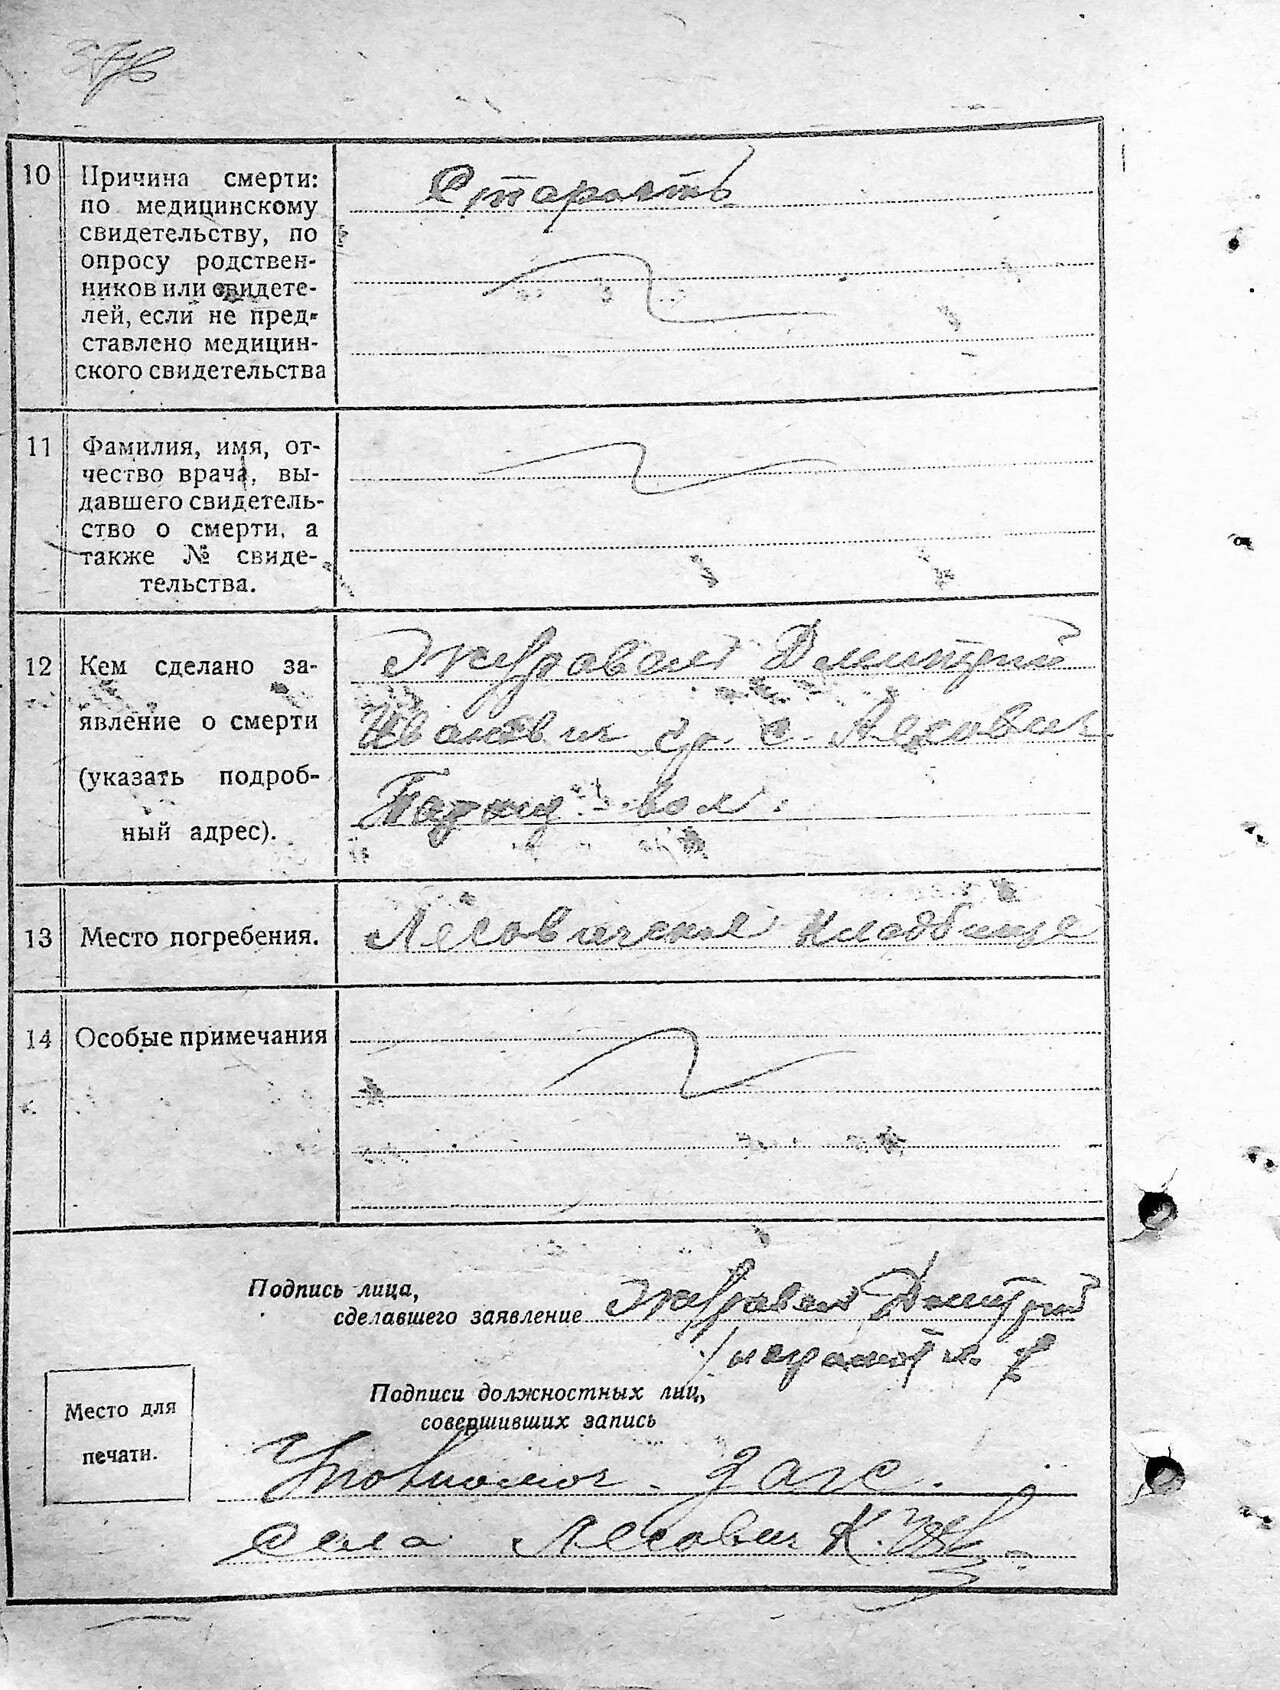 10
Причина смерти:
по медицинскому
свидетельству, по
опросу родствен-
ников или свидете-
лей, если не пред-
ставлено медицин-
ского свидетельства
Старость
11
Фамилия, имя, от-
чество врача, вы-
давшего свидетель-
ство о смерти, а
также № свиде-
тельства.
12
Кем сделано за-
явление о смерти
(указать подроб-
ный адрес).
Журавель Дмитрий
Иванович гр. с. Лесович
вол.
13
Место погребения.
Лесовичское кладбище
14
Особые примечания
Подпись лица,
сделавшего заявление
Журавель Дмитрий
Подписи должностных лиц,
совершивших запись
Место для
печати.
загс.
села Лесович К.